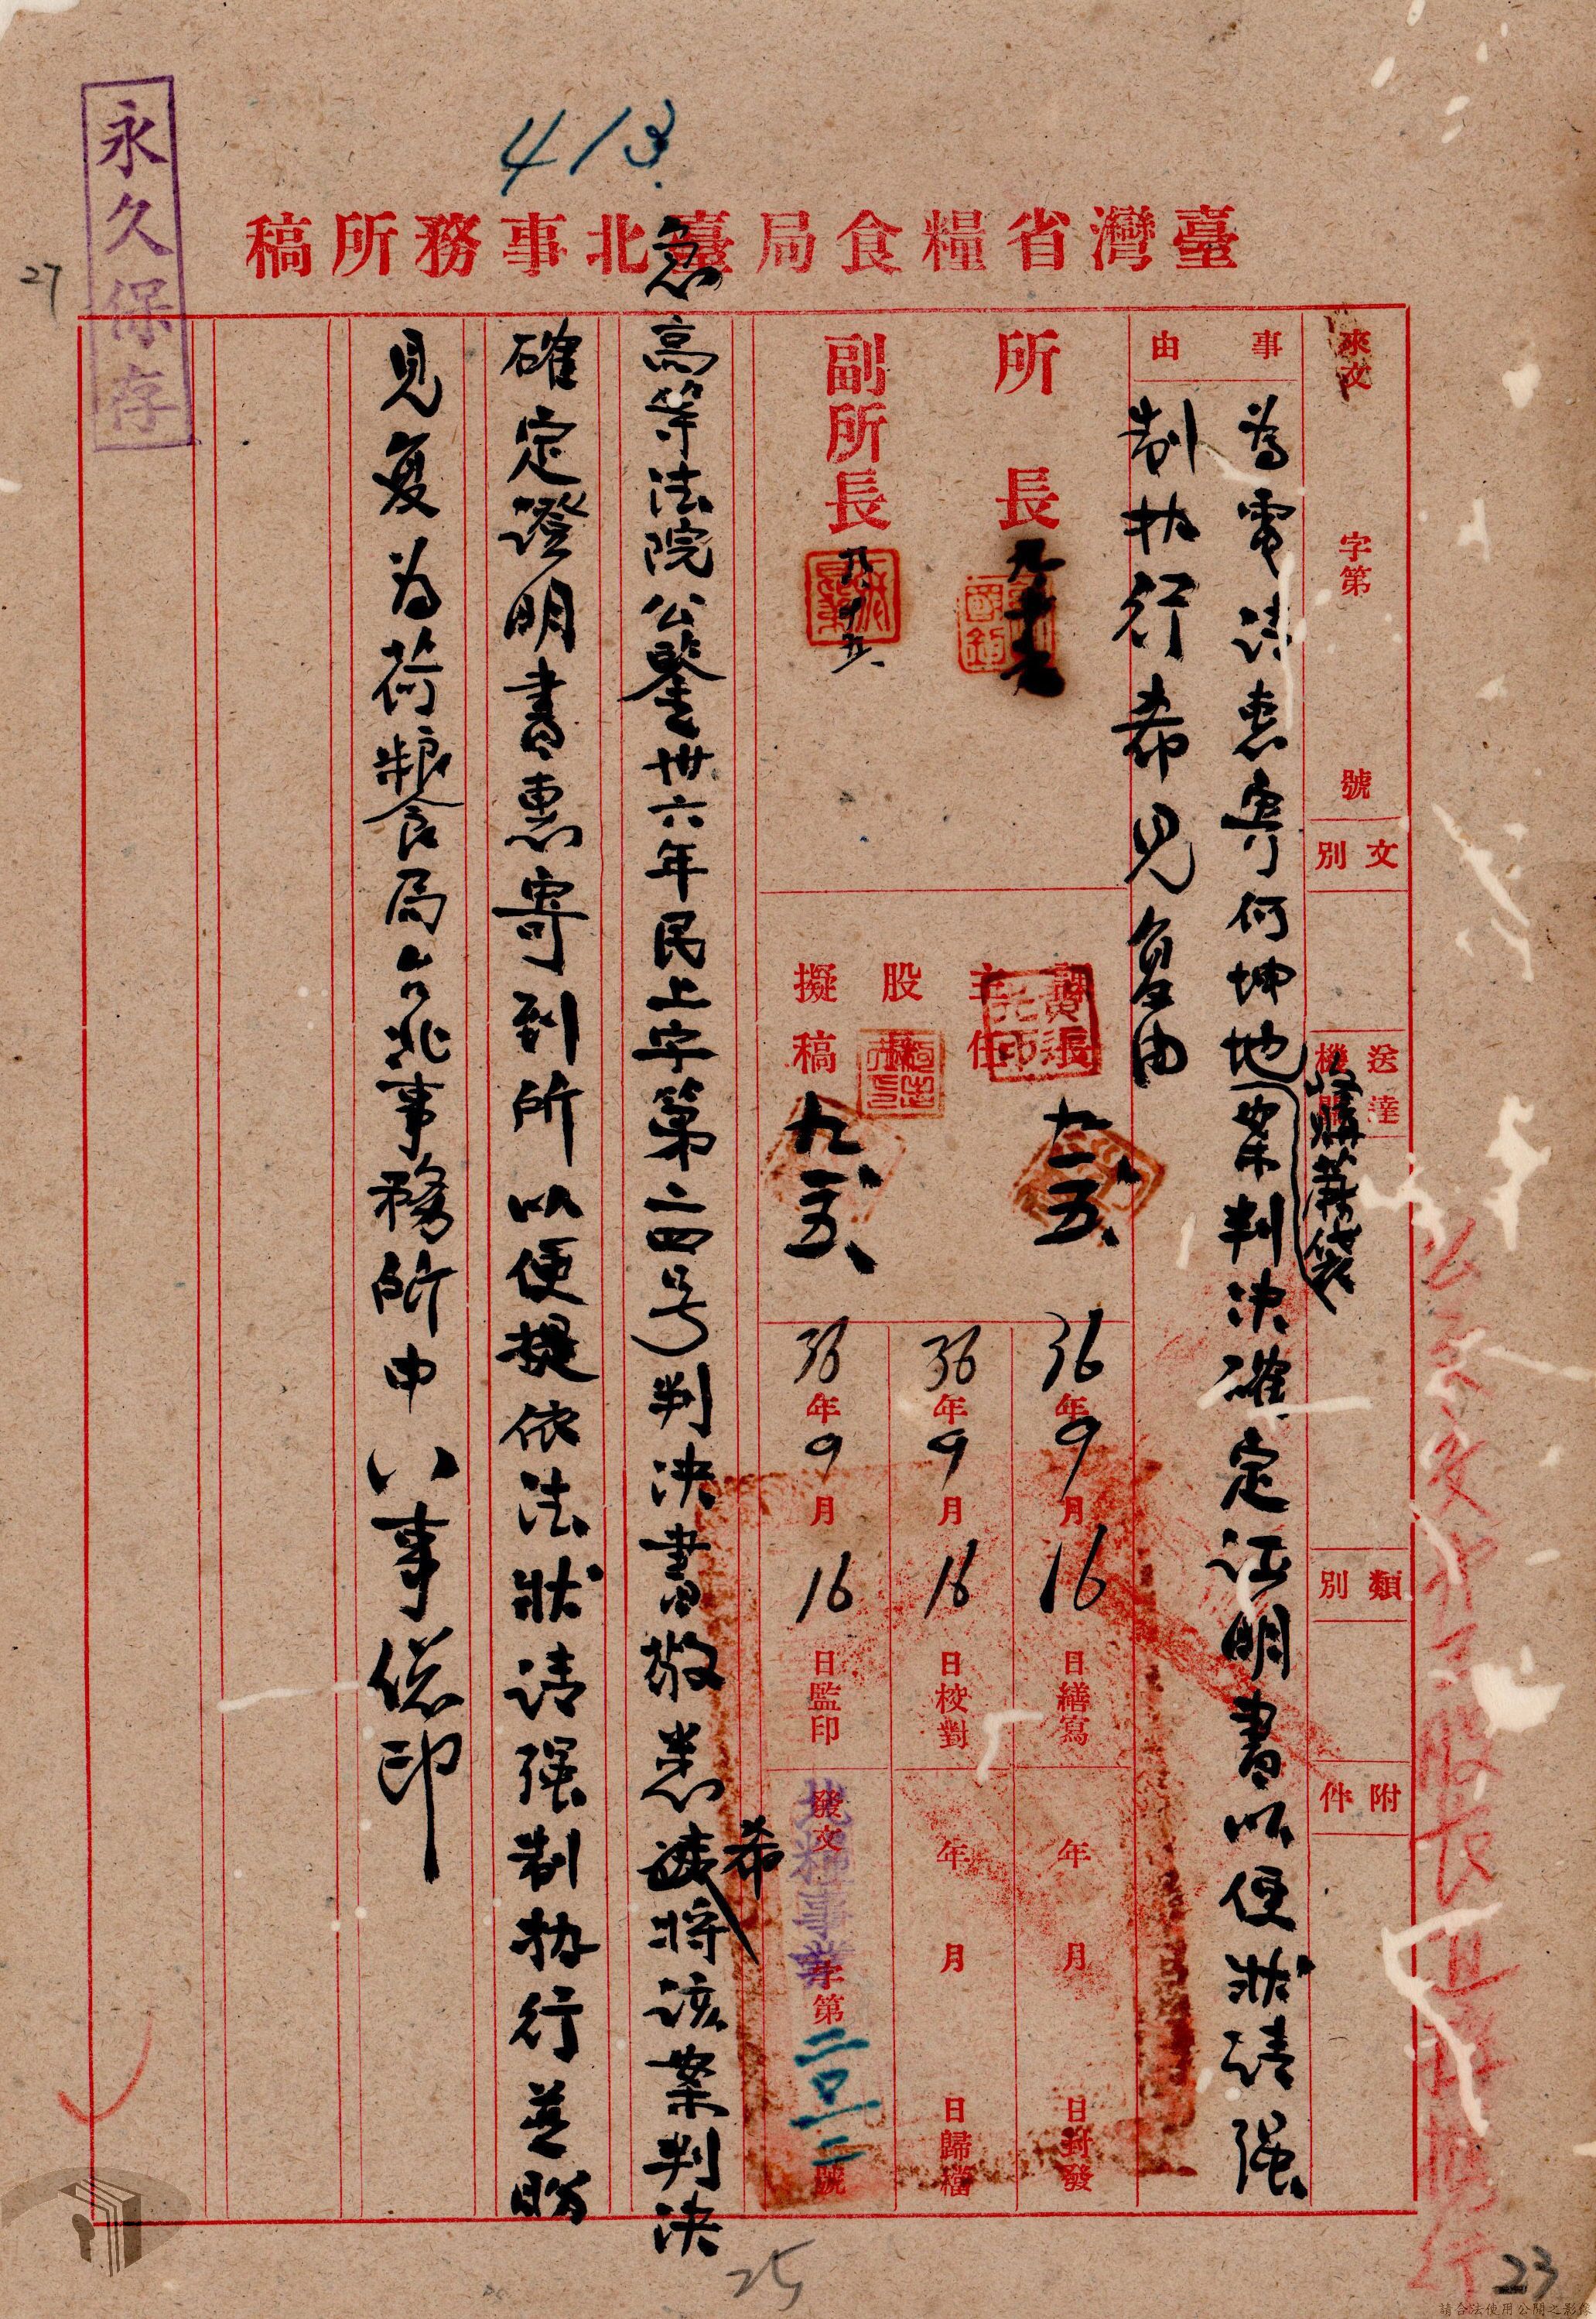 413.
永久保存
27
臺灣省糧食局臺北事務所稿
來文 字第 號
文別
送達機關
類別
附件
事由
為電請惠寄何坤地收購蔴袋案判決確定証明書以便狀請强
制执行希見复由
所長
副所長 九、十五、
課長 九、十五、
主任
股長
擬稿 九、十五、
36年9月16日繕寫
36年9月16日校對
36年9月16日監印
年 月 日封發
年 月 日歸檔
發文 北糧事業字第二〇一二號
急
高等法院公鑒卅六年民上字第二四号判決書敬悉希将该案判決
確定證明書惠寄到所以便提依法狀请强制执行並盼
見复为荷粮食局台北事務所申八事总印
25
23
請合法使用公開之影像